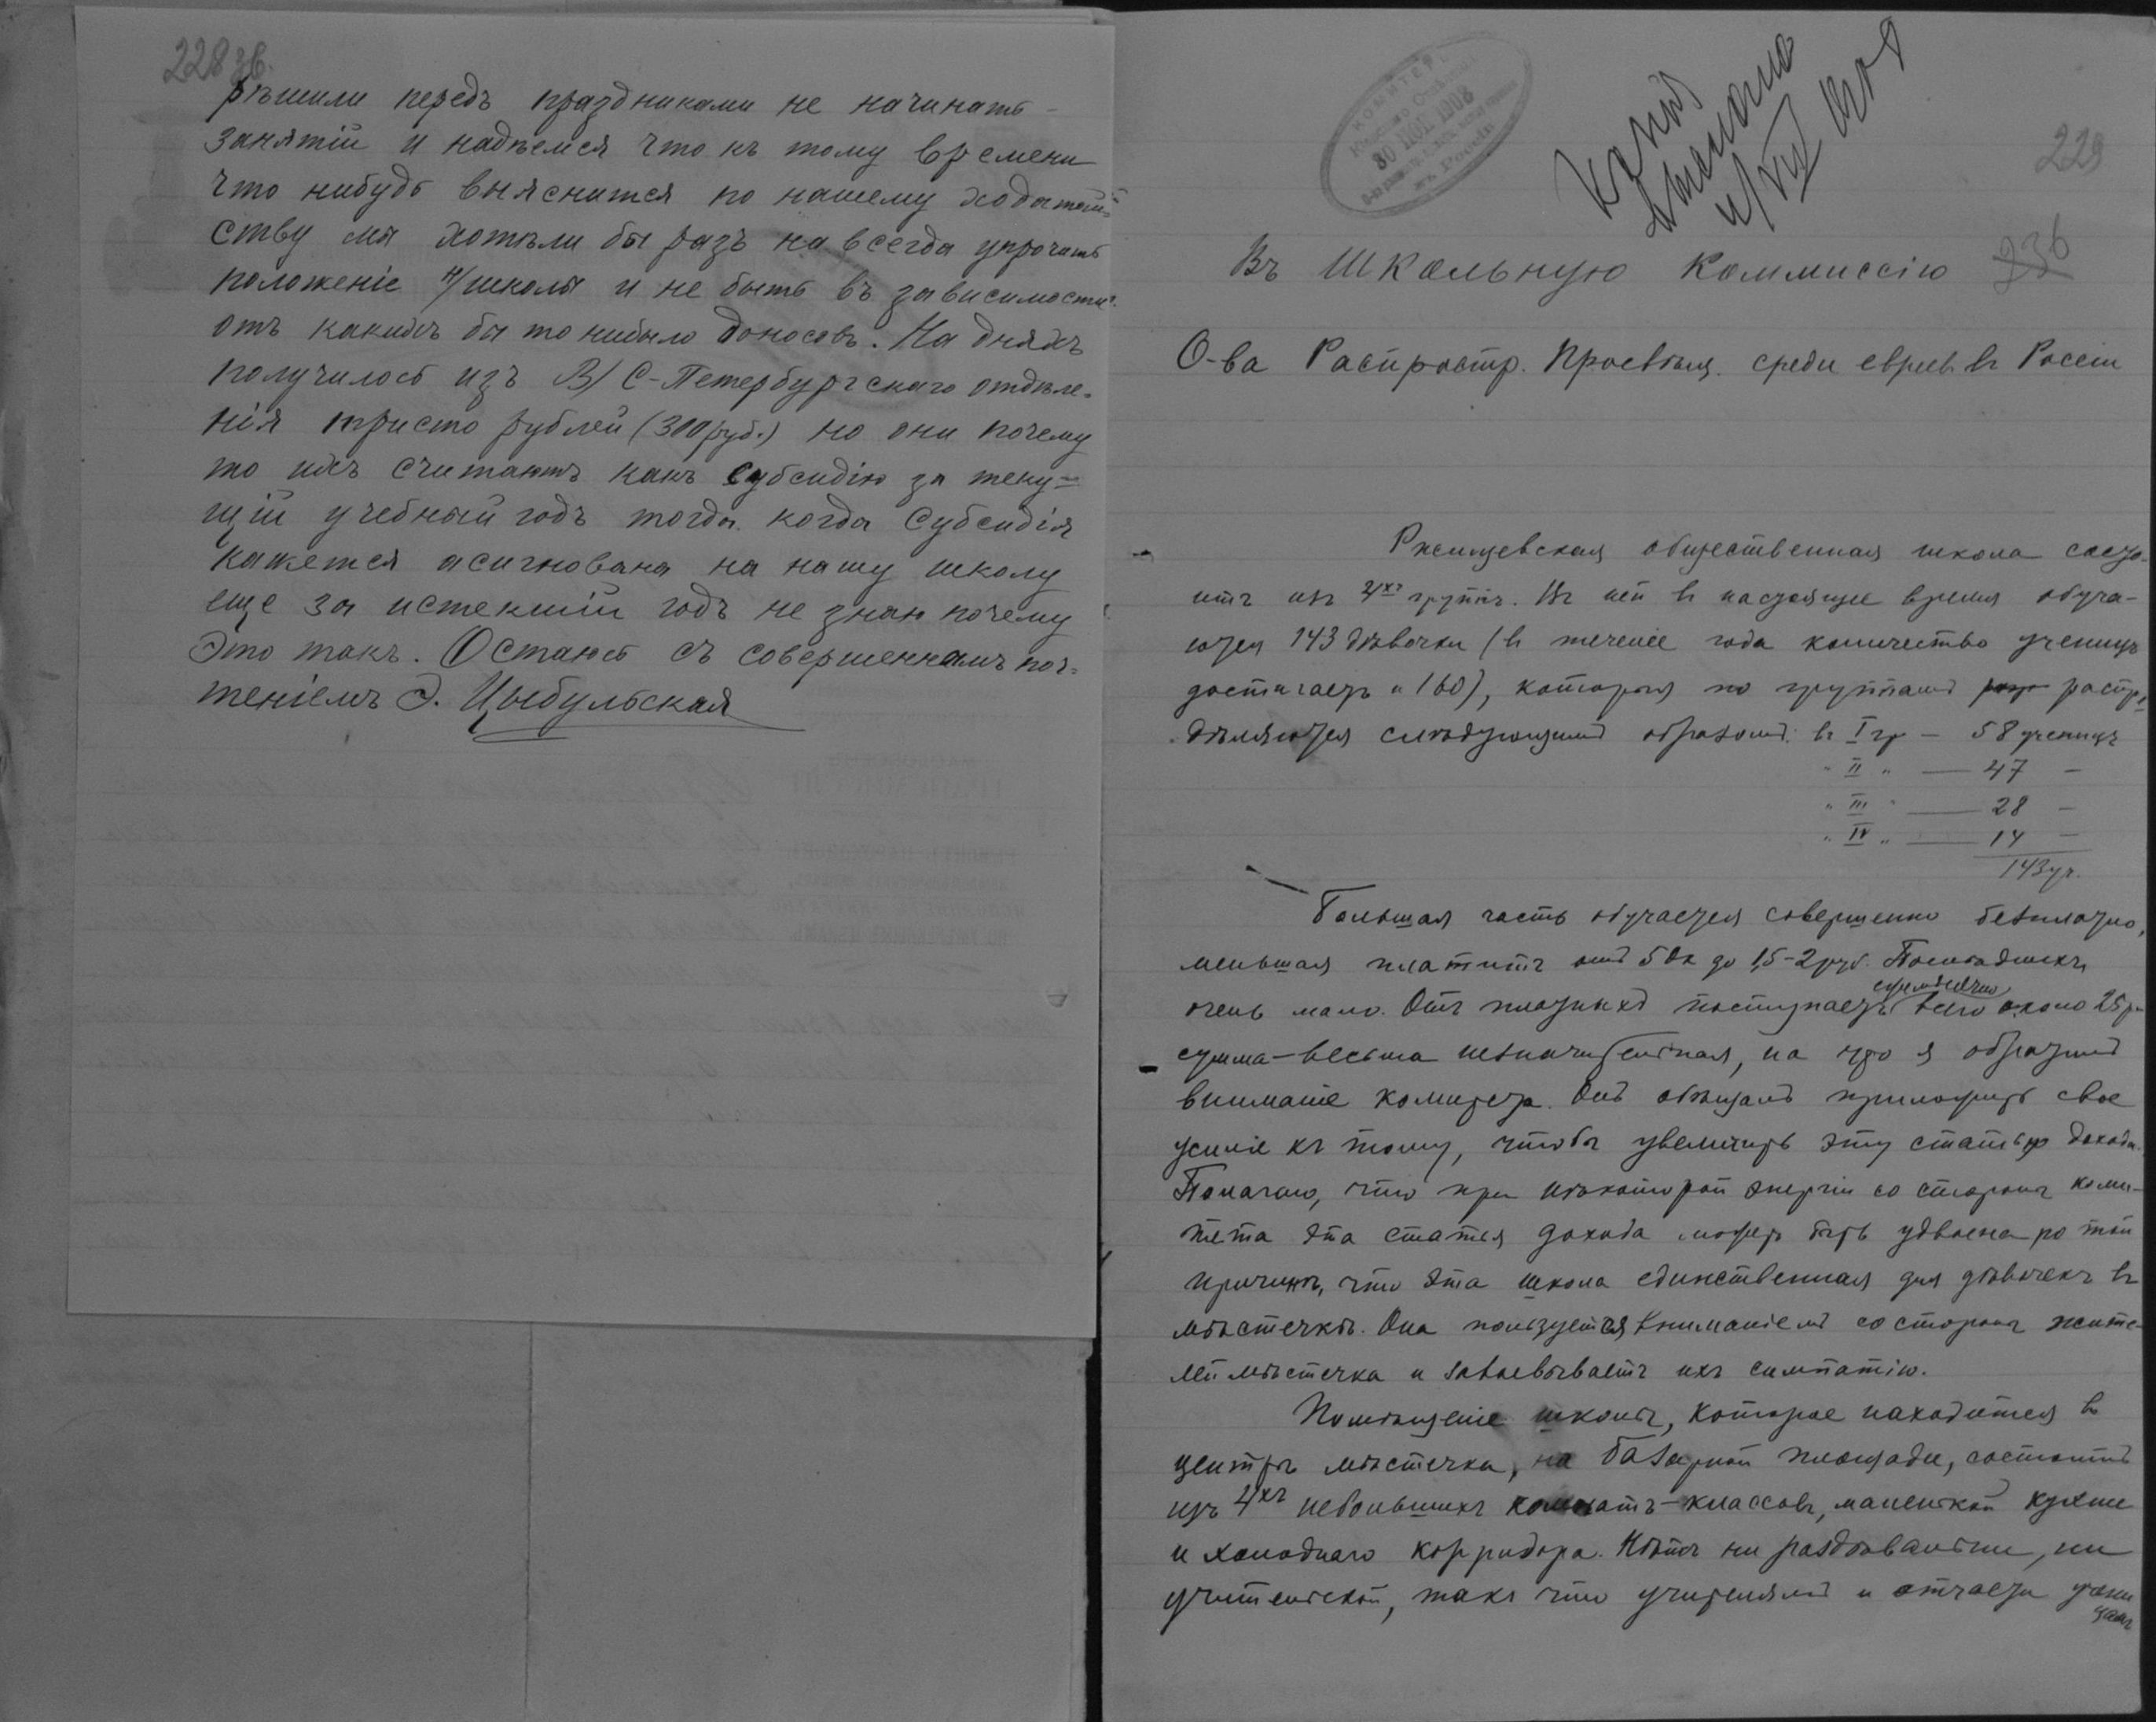 228 зв.
рѣшили передъ праздниками не начинать
занятій и надѣемся что къ тому времени
что нибудь выяснится по нашему ходатай-
ству мы хотѣли бы разъ на всегда упрочить
положеніе н/школы и не быть въ зависимости
отъ какихъ бы то нибыло доносовъ. На дняхъ
получилось изъ В/ С-Петербургскаго отдѣле-
нія тристо рублей (300 руб.) но они почему
то ихъ считаютъ какъ субсидію за теку-
щій учебный годъ тогда когда Субсидія
кажется асигнована на нашу школу
еще за истекшій годъ не знаю почему
Это такъ. Остаюсь съ совершеннымъ поч-
теніемъ Э. Цыбульская
КОМИТЕТЪ
30 НОЯ. 1908
въ Россіи
229
236
Въ Школьную Коммиссію
О-ва Распростр. Просвѣщ. среди евреевъ въ Россіи
Ржищевская общественная школа состо-
итъ изъ 4хъ группъ. Въ ней въ настоящее время обуча-
ются 143 дѣвочки (въ теченіе года количество ученицъ
достигаетъ и 160), которыя по группамъ распре-
дѣляются слѣдующимъ образомъ: въ I гр — 58 ученицъ
" II " — 47 —
" III " — 28 —
" IV " — 14 —
143 уч.
Большая часть обучается совершенно безплатно,
меньшая платитъ отъ 50к до 1,5-2 руб. Послѣднихъ
очень мало. Отъ платныхъ поступаетъ всего около 25 р
сумма — весьма незначительная, на что я обратилъ
вниманіе комитета. Онъ обѣщалъ приложить свое
усиліе къ тому, чтобы увеличить эту статью дохода.
Полагаю, что при нѣкоторой энергіи со стороны коми-
тета эта статья дохода можетъ быть удвоена по той
причинѣ, что эта школа единственная для дѣвочекъ въ
мѣстечкѣ. Она пользуется вниманіемъ со стороны жите-
лей мѣстечка и завоевываетъ ихъ симпатію.
Помѣщеніе школы, которое находится въ
центрѣ мѣстечка, на базарной площади, состоитъ
изъ 4хъ небольшихъ комнатъ-классовъ, маленькой кухни
и холоднаго корридора. Нѣтъ ни раздѣвальни, ни
учительской, такъ что учителямъ и отчасти учени
цамъ